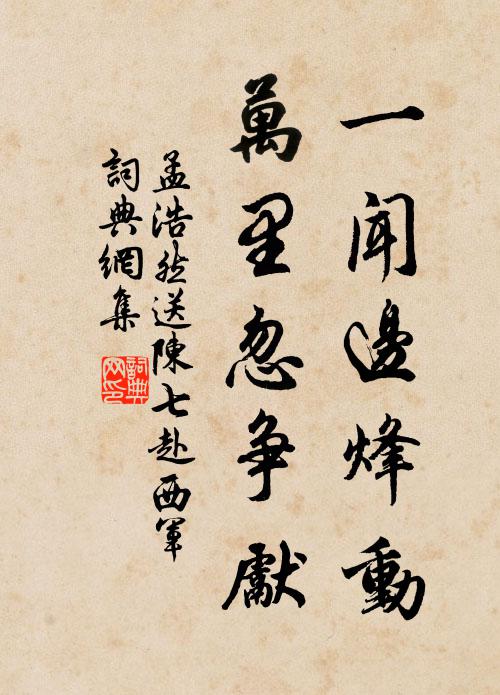 一聞邊烽動
萬里忽爭獻
孟浩然送陳七赴西軍
詞典網集
詞典
网印